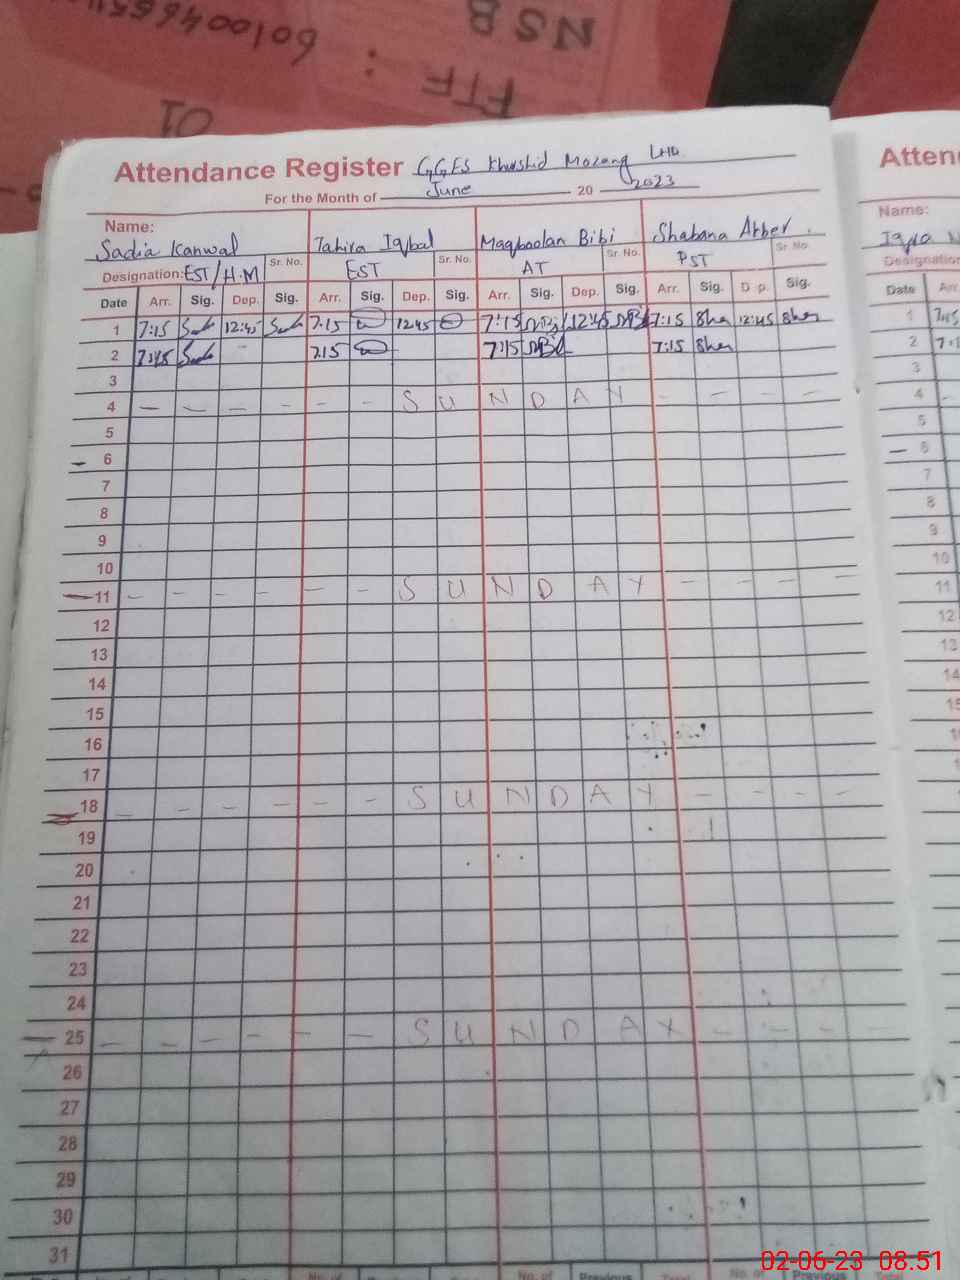 NSB
FTF :
01
Attendance Register GGES Khurshid Mozang LHR
For the Month of June 20 2023
Name: Sadia Kanwal Tahira Iqbal Maqboolan Bibi Shabana Akber
Designation: EST/H.M Sr. No. EST Sr. No. AT Sr. No. PST Sr. No.
Date Arr. Sig. Dep. Sig. Arr. Sig. Dep. Sig. Arr. Sig. Dep. Sig. Arr. Sig. D p. Sig.
1 7:15 12:45 7:15 12:45 7:15 12:45 7:15 Sha 12:45 Sha
2 7:15 7:15 7:15 Sha
3
4 - - - - - - S U N D A Y - - - -
5
6
7
8
9
10
11 - - - - - - S U N D A Y - - - -
12
13
14
15
16
17
18 - - - - - - S U N D A Y - - - -
19
20
21
22
23
24
25 - - - - - - S U N D A Y - - - -
26
27
28
29
30
31
No. of Previous No. of Previous
Atten
Name:
Iqra
Designation
Date Arr
1 7:15
2
3
4
5
6
7
8
9
10
11
12
13
14
02-06-23 08:51